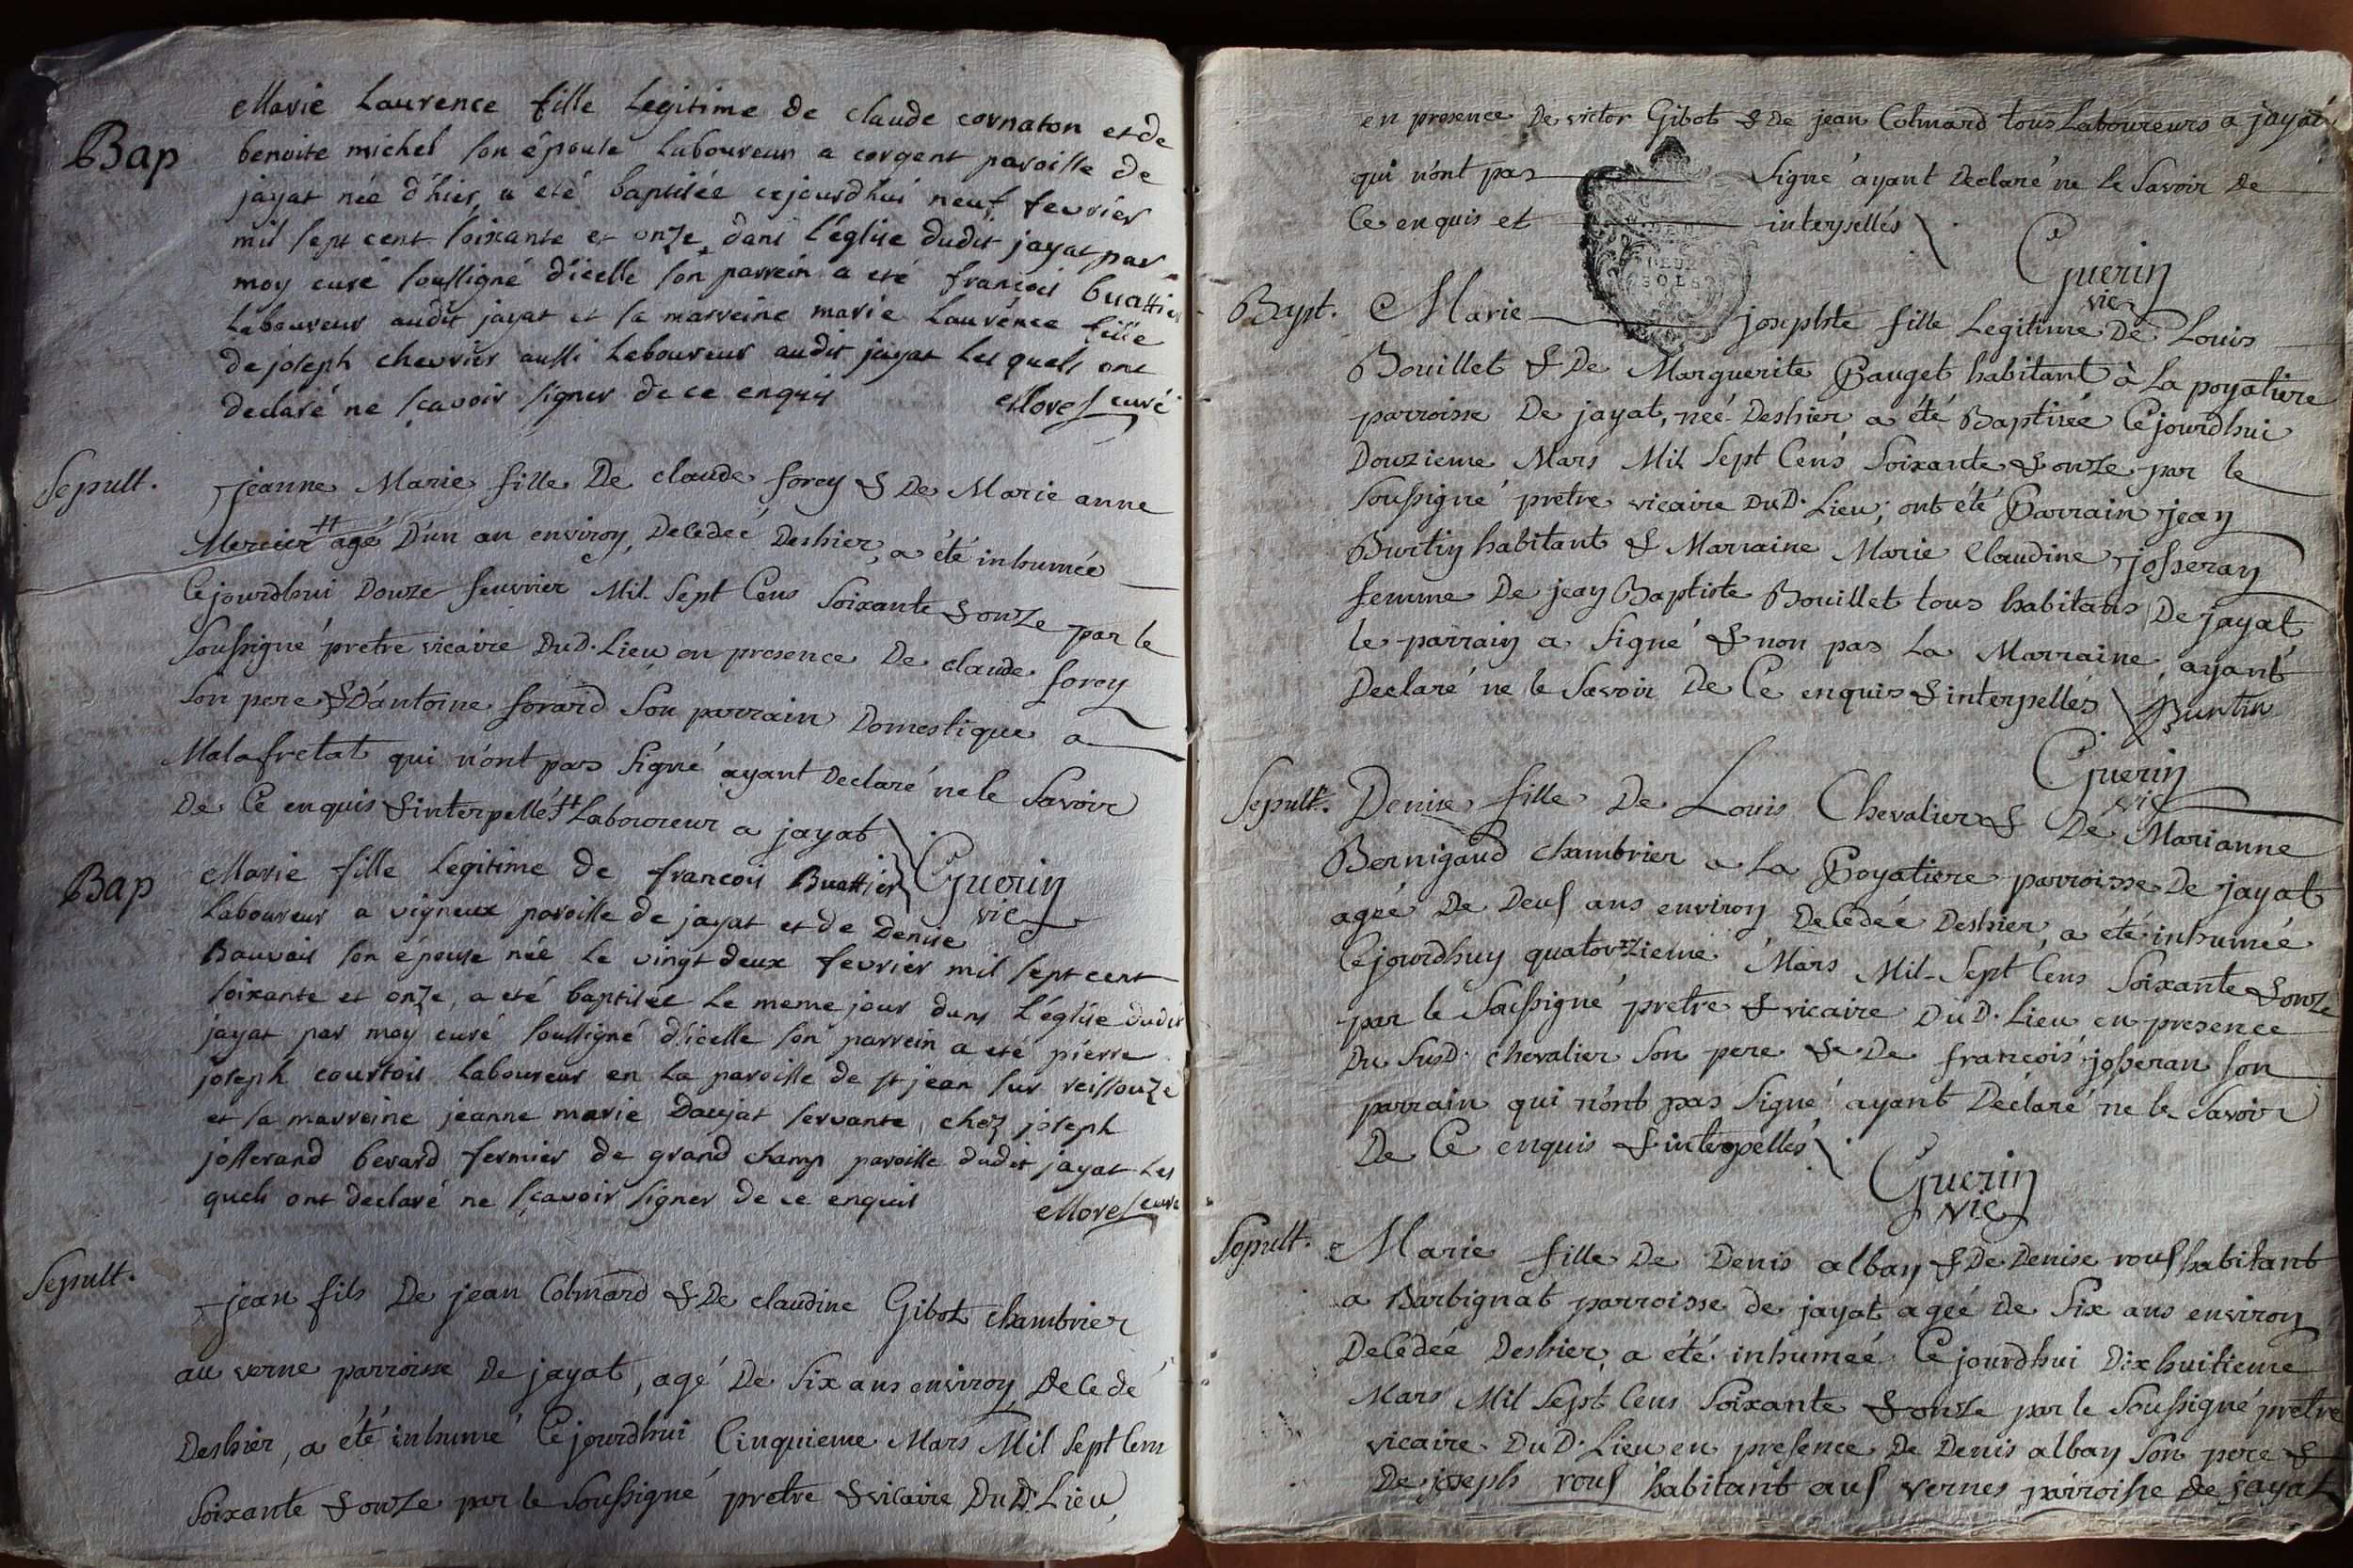 Bap
Marie Laurence fille Legitime de claude cornaton et de
benoite michel son épouse Laboureur a corgent paroisse de
jayat née d'hier, a eté baptisée cejourdhui neuf fevrier
mil sept cent soixante et onze dans l'église dudit jayat par
moy curé soussigné d'icelle son parrein a eté francois buattier
Laboureur audit jayat et sa marreine marie Laurence fille
de joseph chevrier aussi Laboureur audit jayat Lesquels ont
declaré ne sçavoir signer de ce enquis Morel curé
Sepult.
jeanne Marie fille De claude forey & De Marie anne
Mercier ++ agé D'un an environ, Decedeé Deshier, a été inhumée
Cejourdhui Douze feuvrier Mil Sept Cens Soixante & onze par le
Soussigné pretre vicaire DuD. Lieu en presence De claude forey
Son pere & D'antoine forard Son parrain Domestique a
Malafretat qui n'ont pas Signé ayant Declaré ne le Savoir
De Ce enquis & interpellés ++ Laboureur a jayat
Guerin
vic
Bap
Marie fille Legitime de francois Buattier
Laboureur a vigneux paroisse de jayat et de Denise
Bauvais son épouse née Le vingt deux fevrier mil sept cent
soixante et onze, a eté baptisée Le meme jour dans L'église dudit
jayat par moy curé soussigné d'icelle son parrein a eté pierre
joseph courtois Laboureur en La paroisse de st jean sur reissouze
et sa marreine jeanne marie Daujat servante chez joseph
josserand berard fermier de grand champ paroisse dudit jayat Les
quels ont declaré ne sçavoir signer de ce enquis Morel curé
Sepult.
jean fils De jean Colmard & De claudine Gibot chambrier
au verne parroisse De jayat, agé De Six ans environ Decedé
Deshier, a été inhumé Cejourdhui Cinquieme Mars Mil Sept Cens
Soixante & onze par le Soussigné pretre & vicaire DuD. Lieu,
en presence De victor Gibot & De jean Colmard tous Laboureurs a jayat
qui n'ont pas Signé ayant Declaré ne le Savoir De
Ce enquis et interpellés
DEUX
SOLS
Guerin
vic
Bapt.
Marie josephte fille Legitime De Louis
Bouillet & De Marguerite Pauget habitant à La poyatiere
parroisse De jayat, neé Deshier a été Baptisée Cejourdhui
Douzieme Mars Mil Sept Cens Soixante & onze par le
Soussigné pretre vicaire DuD. Lieu; ont été Parrain jean
Burtin habitant & Marraine Marie Claudine josseran
femme De jean Baptiste Bouillet tous habitans De jayat
le parrain a Signé & non pas La Marraine ayant
Declaré ne le Savoir De Ce enquis & interpellés Burtin
Guerin
vic
Sepult.
Denise fille De Louis Chevalier & De Marianne
Bernigaud chambrier a La Poyatiere parroisse De jayat
ageé De Deuf ans environ Decedeé Deshier, a été inhumée
Cejourdhuy quatorzieme Mars Mil Sept Cens Soixante & onze
par le Soussigné pretre & vicaire DuD. Lieu en presence
Du SusD. chevalier Son pere & De francois josseran son
parrain qui n'ont pas Signé ayant Déclaré ne le Savoir
De Ce enquis & interpellés
Guerin
vic
Sepult.
Marie fille De Denis alban & De Denise rouf habitant
a Barbignat parroisse de jayat ageé De Six ans environ
Decedée Deshier, a été inhumeé Cejourdhui Dixhuitieme
Mars Mil Sept Cens Soixante & onze par le Soussigné pretre
vicaire DuD. Lieu en presence De Denis alban Son pere &
De joseph rouf habitant auf vernes parroisse de jayat